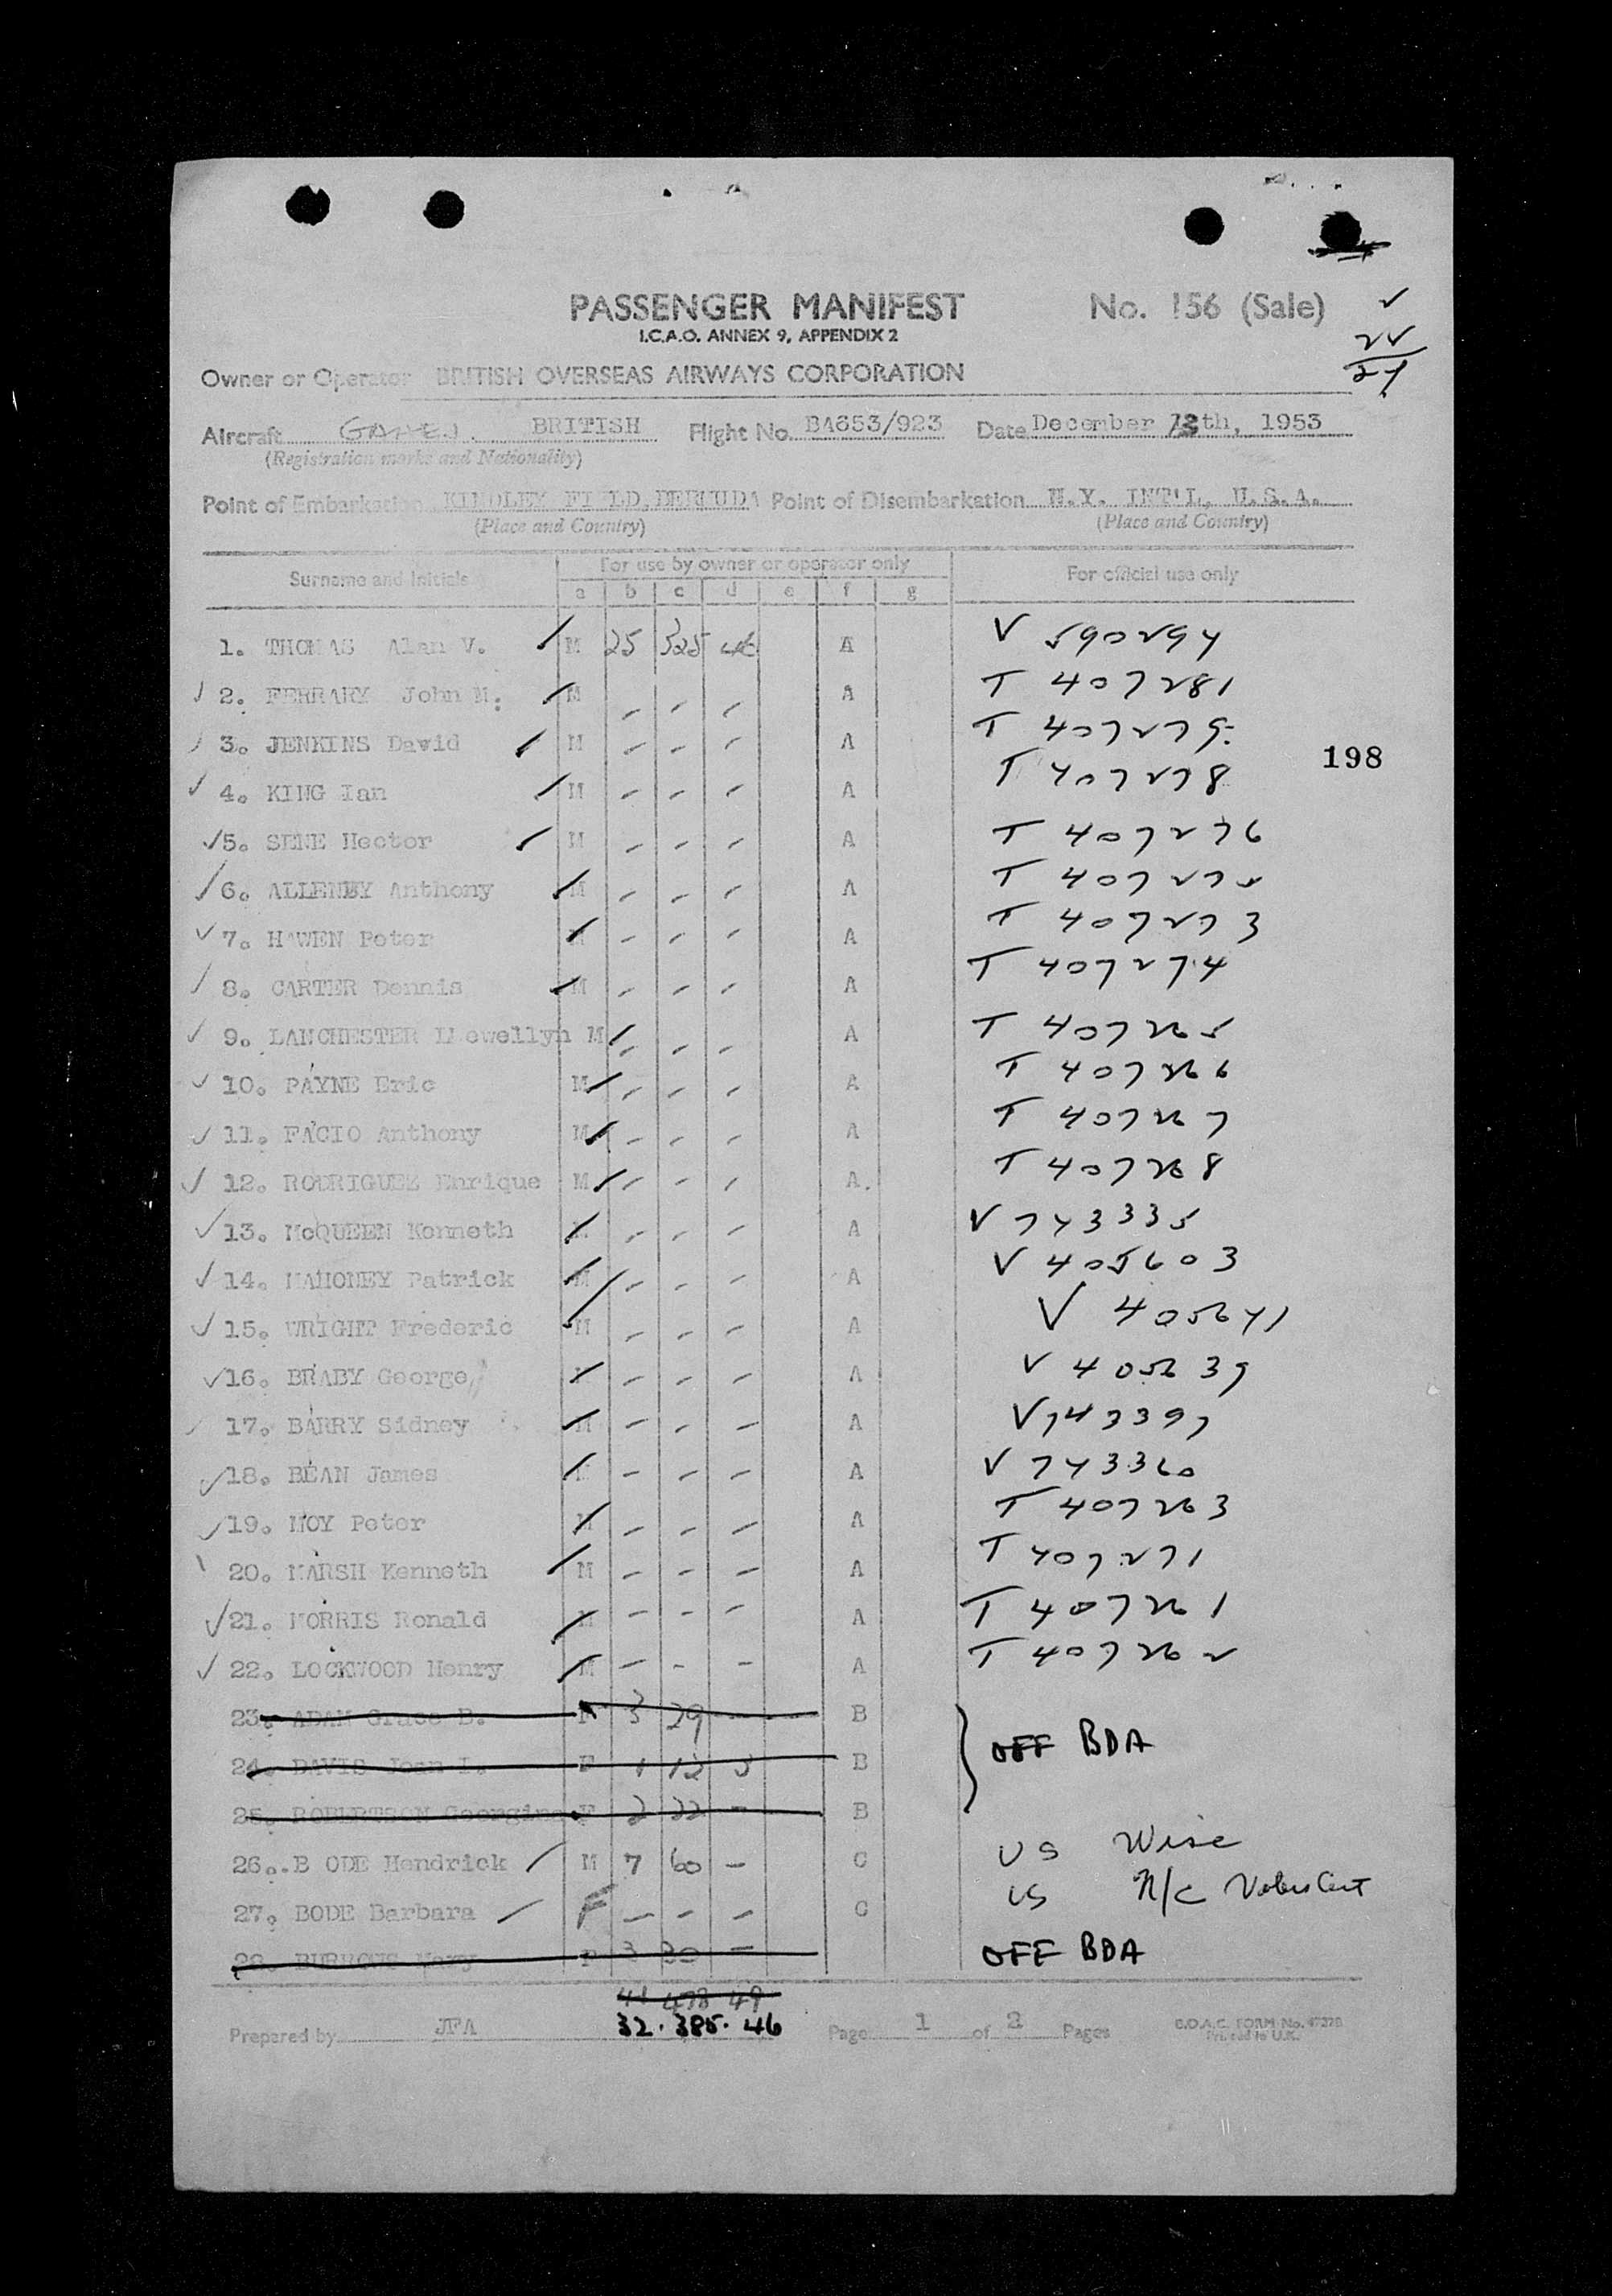 PASSENGER MANIFEST No. 156 (Sale)
I.C.A.O. ANNEX 9, APPENDIX 2
Owner or Operator BRITISH OVERSEAS AIRWAYS CORPORATION
Aircraft BRITISH Flight No. BA653/923 Date December 13th, 1953
(Registration marks and Nationality)
Point of Embarkation KINDLEY FIELD, BERMUDA Point of Disembarkation N.Y. INT'L, U.S.A.
(Place and Country) (Place and Country)
Surname and Initials For use by owner or operator only For official use only
a b c d e f g
1. THOMAS Alan V. M 25 325 46 A V 590294
2. FERRARY John M. M - - - A T 407281
3. JENKINS David M - - - A T 407279
198
4. KING Ian M - - - A T 407278
5. SENE Hector M - - - A T 407276
6. ALLENBY Anthony M - - - A T 407275
7. HAWEN Peter M - - - A T 407273
8. CARTER Dennis M - - - A T 407274
9. LANCHESTER Llewellyn M - - - A T 407265
10. PAYNE Eric M - - - A T 407266
11. FACIO Anthony M - - - A T 407267
12. RODRIGUEZ Enrique M - - - A. T 407268
13. McQUEEN Kenneth M - - - A V 743335
14. MAHONEY Patrick M - - - A V 405603
15. WRIGHT Frederic M - - - A V 405641
16. BRABY George M - - - A V 405639
17. BARRY Sidney M - - - A V 743397
18. BEAN James M - - - A V 743360
19. MOY Peter M - - - A T 407263
20. MARSH Kenneth M - - - A T 407271
21. MORRIS Ronald M - - - A T 407261
22. LOCKWOOD Henry M - - - A T 407262
23. ADAM Grace B. F 3 29 - B
24. DAVIS Joan I. F 1 12 3 B OFF BDA
25. ROBERTSON Georgina F 2 22 - B
26. B ODE Hendrick M 7 60 - C US Wise
27. BODE Barbara F - - - C US N/C
28. BURROWS Mary F 3 30 - OFF BDA
41 478 49
32. 385. 46
Prepared by JFA Page 1 of 2 Pages B.O.A.C. FORM No.
Printed in U.K.